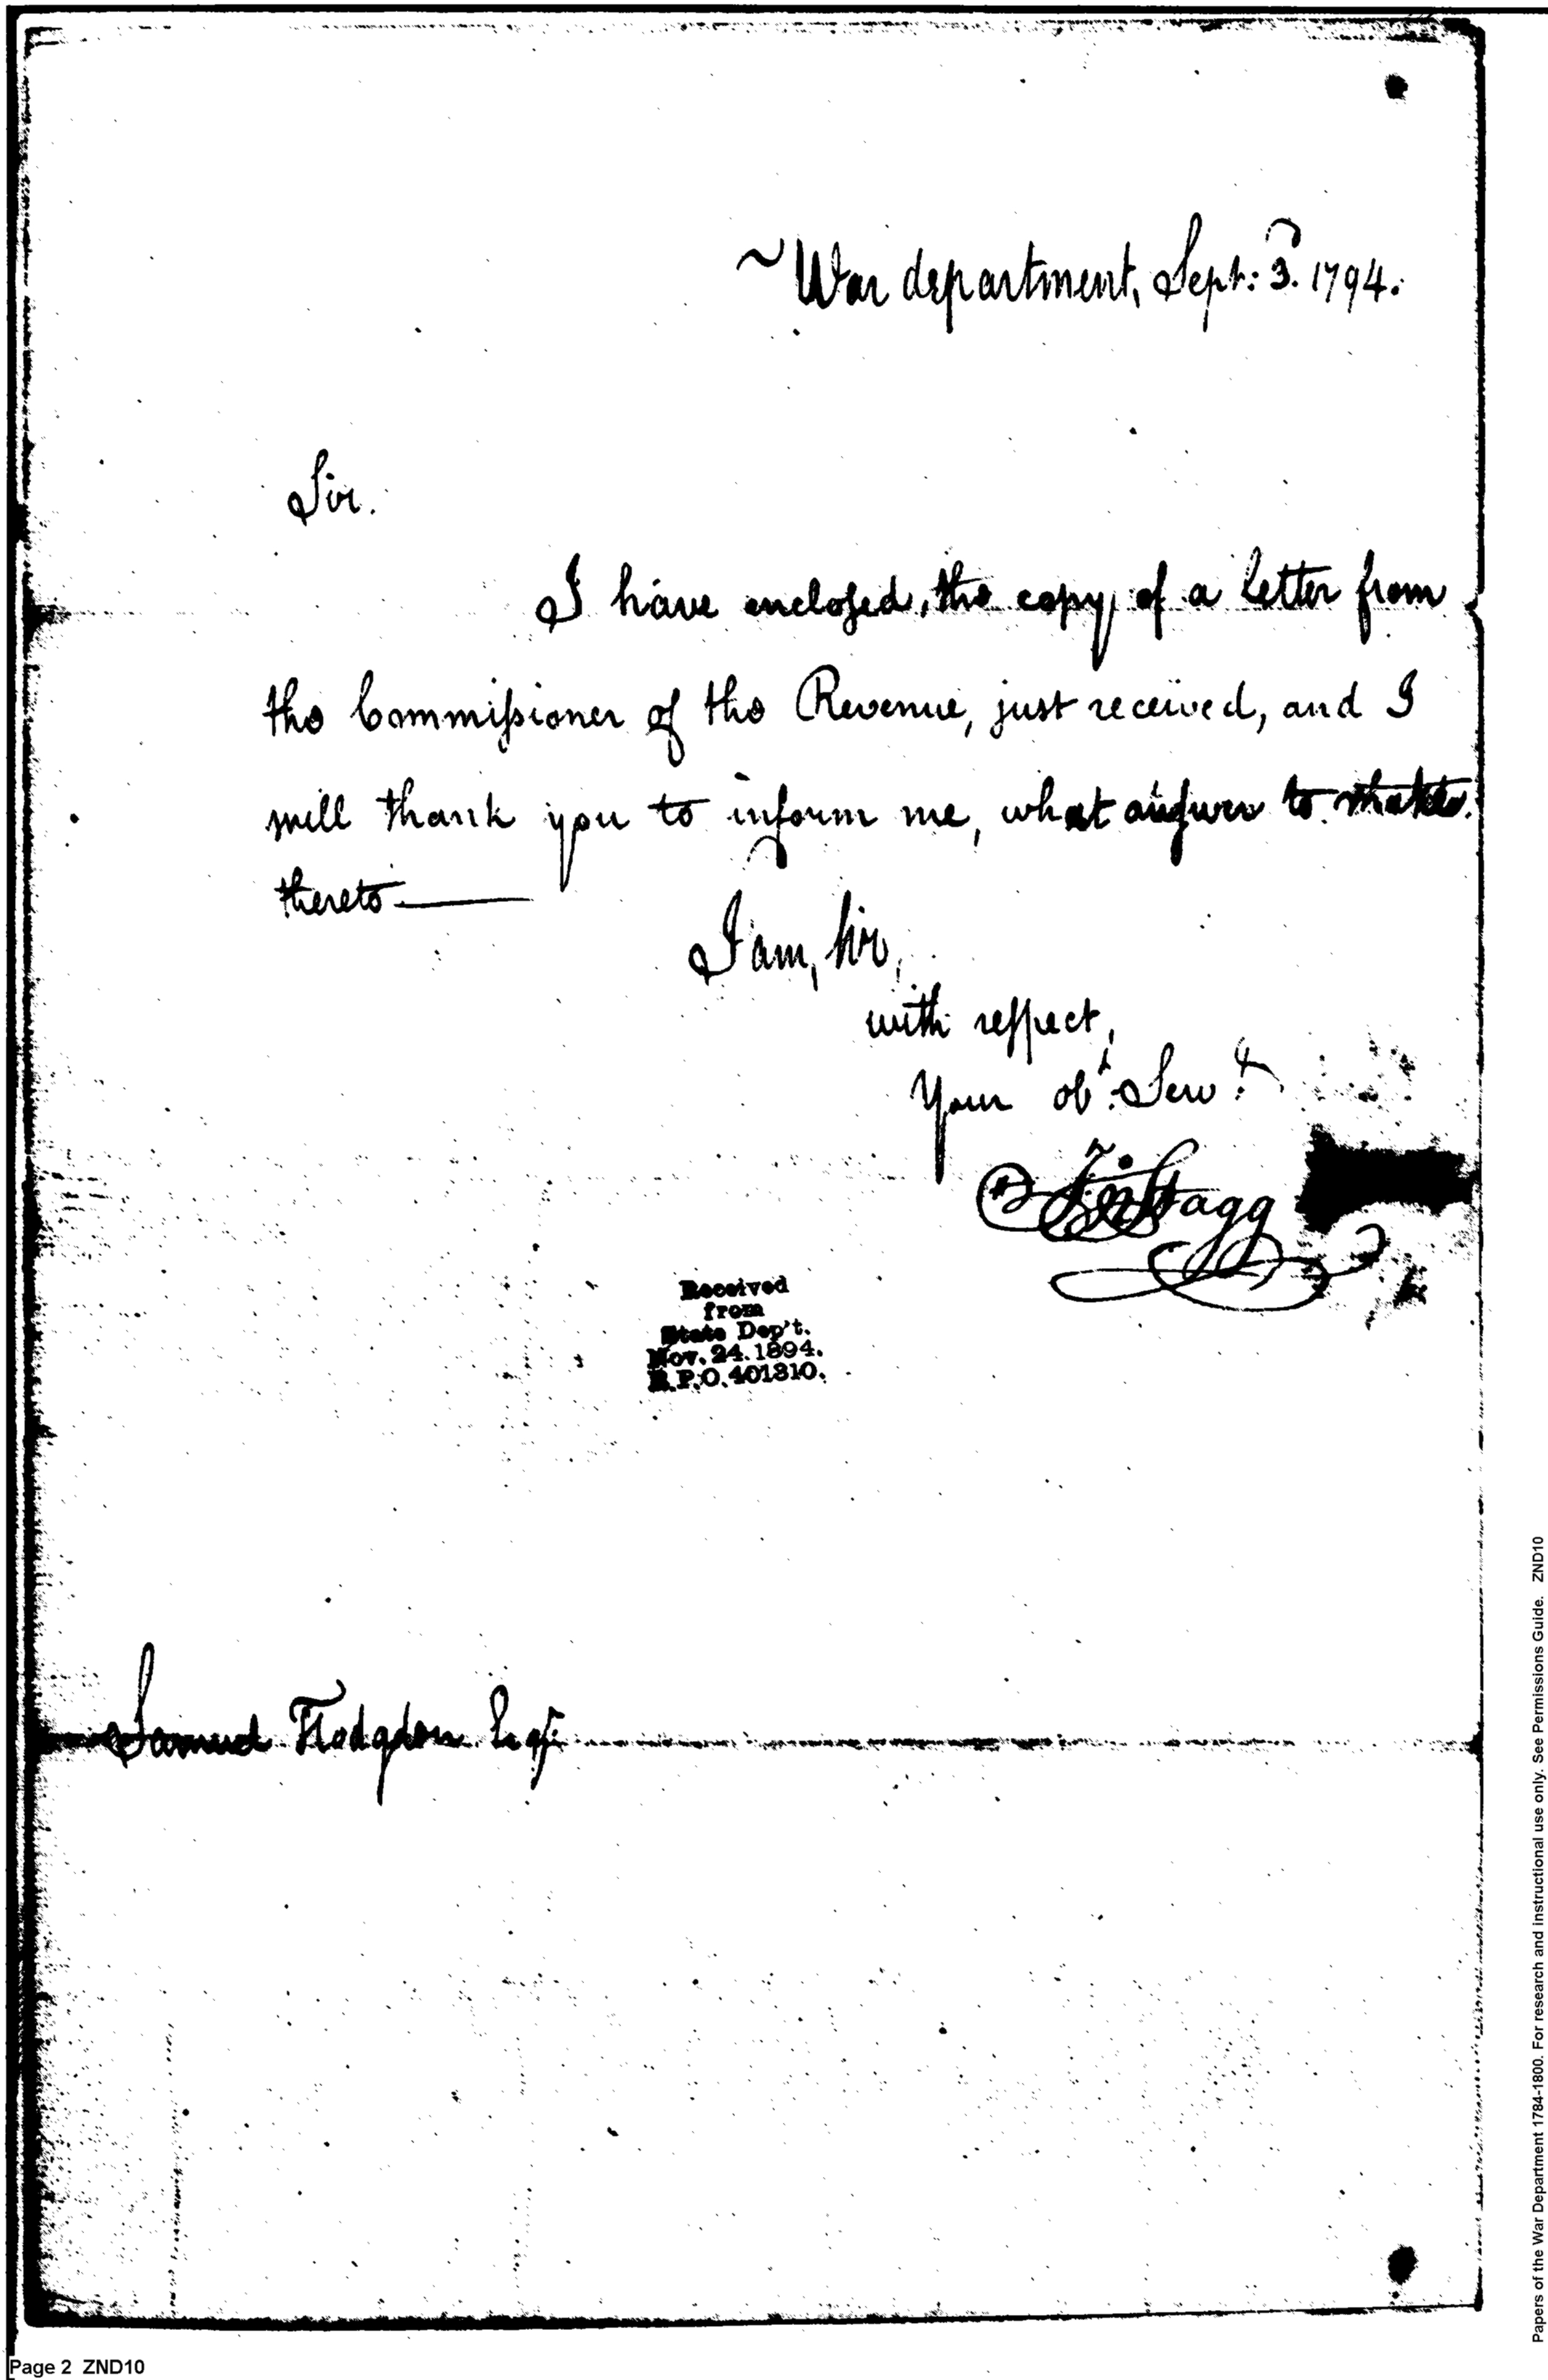 War department, Sept: 3. 1794.
Sir.
I have enclosed, the copy of a letter from
the Commissioner of the Revenue, just received, and I
will thank you to inform me, what answer to make
thereto
I am, Sir,
with respect,
Your obt. Servt.
Jno Stagg
Received
from
State Dep't.
Nov. 24. 1894.
R.P.O. 401310.
Samuel Hodgdon Esqr.
Page 2 ZND10
Papers of the War Department 1784-1800. For research and instructional use only. See Permissions Guide. ZND10